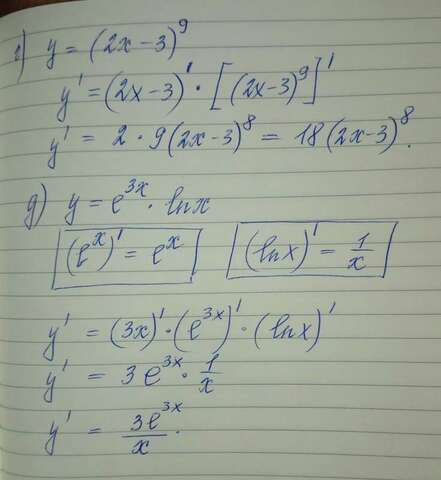 г) y = (2x-3)⁹
y' = (2x-3)' · [(2x-3)⁹]'
y' = 2 · 9(2x-3)⁸ = 18(2x-3)⁸.
g) y = e³ˣ · lnx
(eˣ)' = eˣ (lnx)' = 1/x
y' = (3x)' · (e³ˣ)' · (lnx)'
y' = 3e³ˣ · 1/x
y' = 3e³ˣ/x.